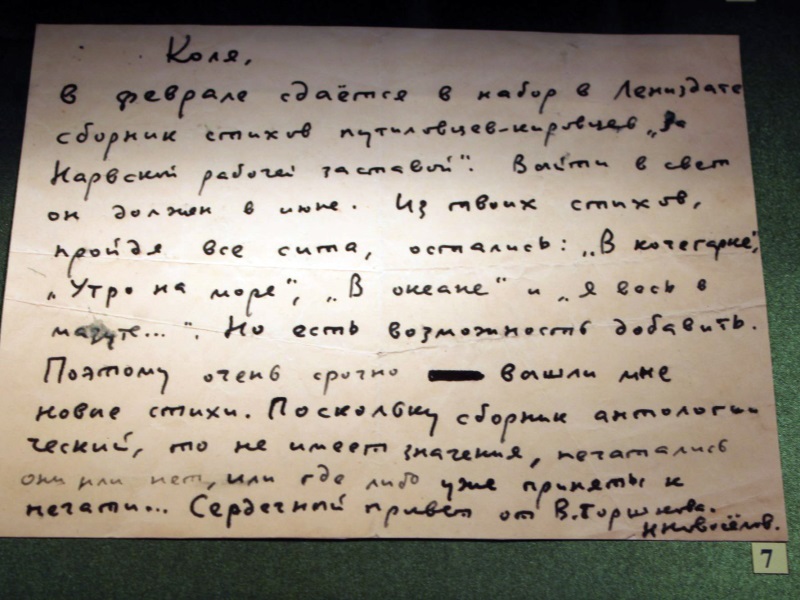 Коля,
в феврале сдаётся в набор в Лениздате
сборник стихов путиловцев-кировцев „За
Нарвской рабочей заставой“. Выйти в свет
он должен в июне. Из твоих стихов,
пройдя все сита, остались: „В кочегарке“,
„Утро на море“, „В океане“ и „Я весь в
мазуте...“. Но есть возможность добавить.
Поэтому очень срочно вышли мне
новые стихи. Поскольку сборник антологи
ческий, то не имеет значения, печатались
они или нет, или где либо уже приняты к
печати... Сердечный привет от В. Горшкова.
Н Новосёлов.
7